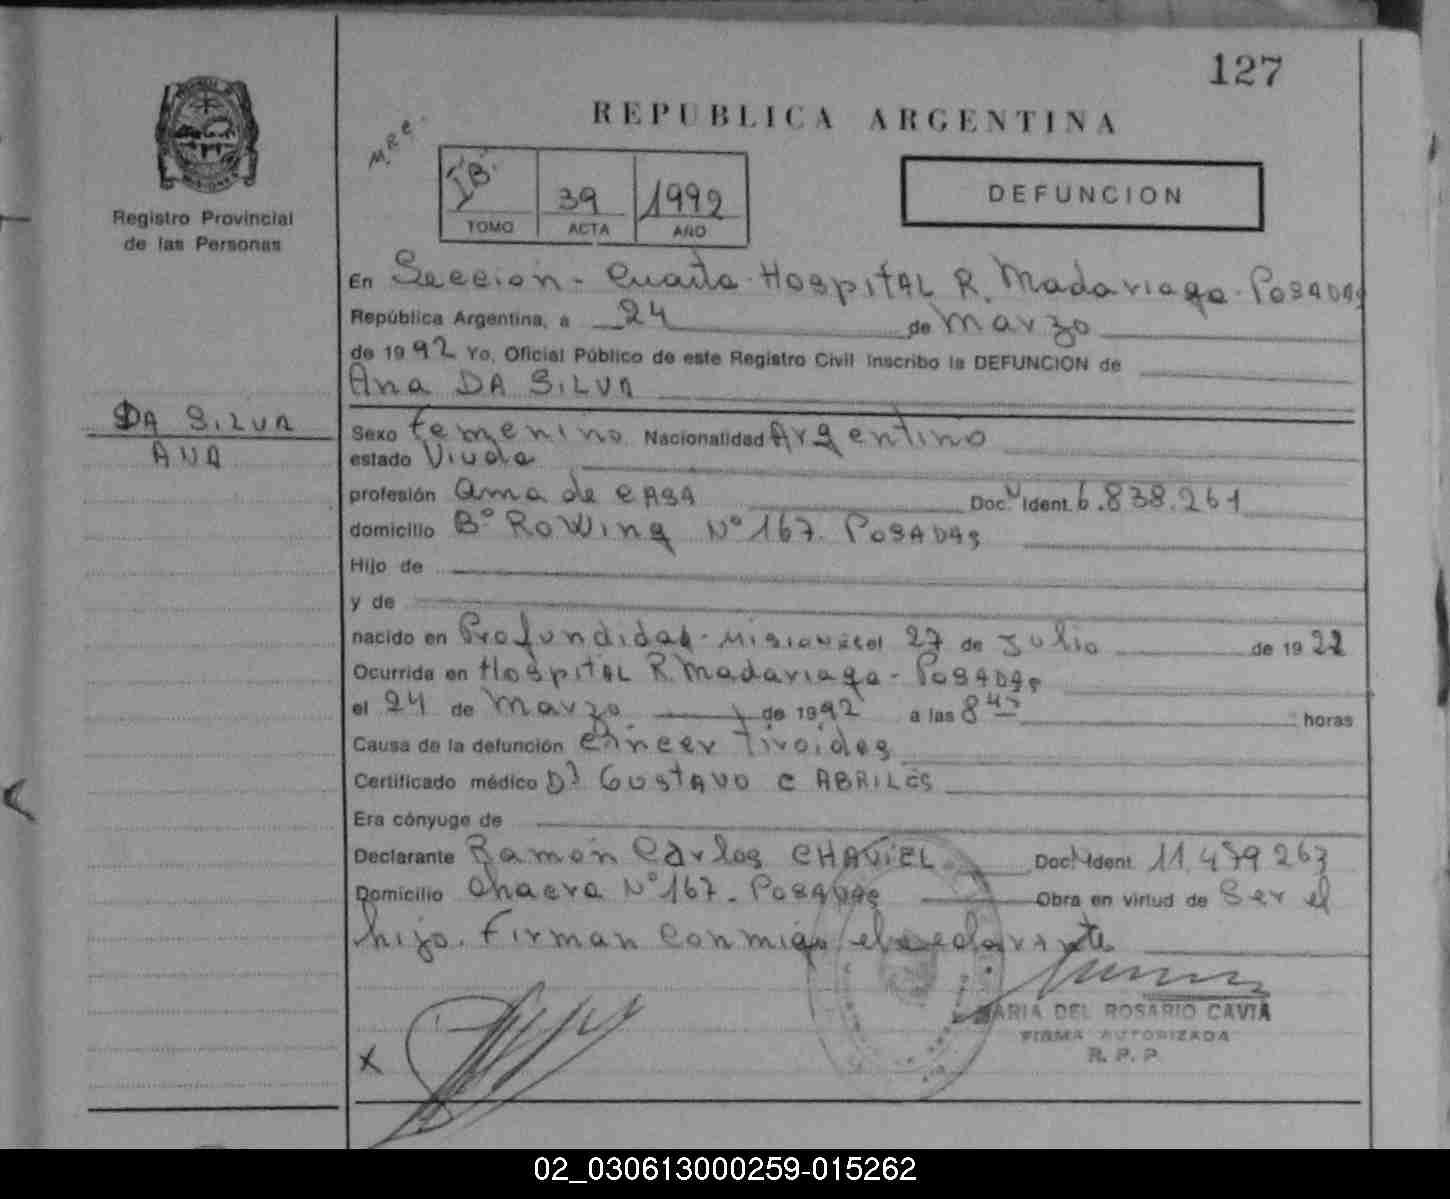 127
REPUBLICA ARGENTINA
M.R.C.
IB.
39
1992
TOMO
ACTA
AÑO
DEFUNCION
Registro Provincial
de las Personas
En Seccion - Cuarta - Hospital R. Madariaga - Posadas
República Argentina, a 24 de Marzo
de 1992 Yo, Oficial Público de este Registro Civil Inscribo la DEFUNCION de
Ana DA SILVA
DA SILVA
ANA
Sexo femenino Nacionalidad Argentino
estado Viuda
profesión ama de casa Doc. N Ident. 6.838.261
domicilio Bº Rowing Nº 167. Posadas
Hijo de
y de
nacido en Profundidad - Misiones el 27 de Julio de 1922
Ocurrida en Hospital R. Madariaga - Posadas
el 24 de Marzo de 1992 a las 8 45 horas
Causa de la defunción cáncer tiroides
Certificado médico Dr. GUSTAVO C ABRILES
Era cónyuge de
Declarante Ramón Carlos CHAVIEL Doc. N Ident. 11.479263
Domicilio Chacra Nº 167 - Posadas Obra en virtud de Ser el
hijo. Firman conmigo el declarante
MARIA DEL ROSARIO CAVIA
FIRMA AUTORIZADA
R. P. P.
X
02_030613000259-015262